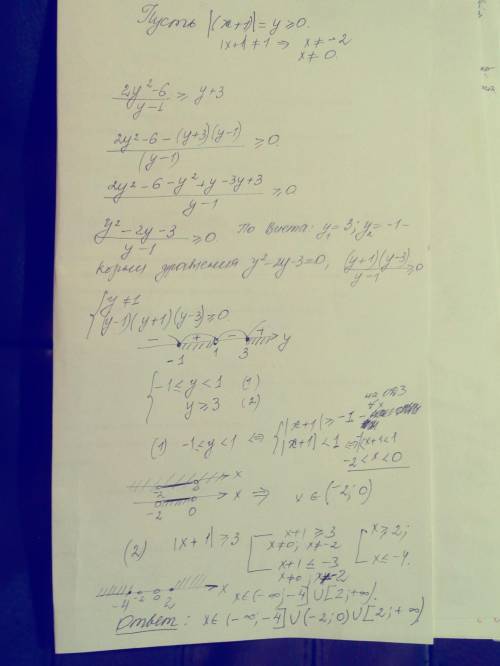 Пусть |(x+1)| = y ≥ 0.
|x+1| ≠ 1 ⇒ x ≠ -2
x ≠ 0.
2y²-6 / y-1 ≥ y+3
2y²-6-(y+3)(y-1) / (y-1) ≥ 0
2y²-6-y²+y-3y+3 / y-1 ≥ 0
y²-2y-3 / y-1 ≥ 0. По Виета: y₁ = 3; y₂ = -1 -
корни уравнения y²-2y-3=0, (y+1)(y-3) / y-1 ≥ 0
{ y ≠ 1
(y-1)(y+1)(y-3) ≥ 0
- + - + y
-1 1 3
{ -1 ≤ y < 1 (1)
y ≥ 3 (2)
(1) -1 ≤ y < 1 ⇔ { |x+1| ≥ -1 -
|x+1| < 1 ⇔ -1<x+1<1
-2 < x < 0
-2 0 x
-2 0 x ⇒ x ∈ (-2; 0)
(2) |x+1| ≥ 3 [ x+1 ≥ 3 [ x ≥ 2;
x≠0, x≠-2
x+1 ≤ -3 x ≤ -4.
x≠0, x≠-2
-4 -2 0 2 x x ∈ (-∞, -4] ∪ [2; +∞).
Ответ: x ∈ (-∞, -4] ∪ (-2; 0) ∪ [2; +∞)